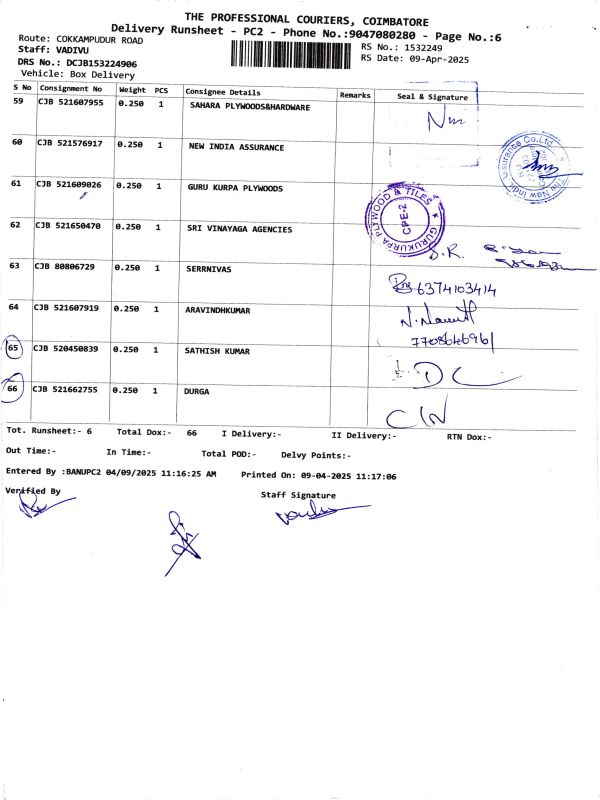 THE PROFESSIONAL COURIERS, COIMBATORE
Delivery Runsheet - PC2 - Phone No.:9047080280 - Page No.:6
Route: COKKAMPUDUR ROAD
RS No.: 1532249
Staff: VADIVU
RS Date: 09-Apr-2025
DRS No.: DCJB153224906
Vehicle: Box Delivery
S No Consignment No Weight PCS Consignee Details Remarks Seal & Signature
59 CJB 521607955 0.250 1 SAHARA PLYWOODS&HARDWARE
60 CJB 521576917 0.250 1 NEW INDIA ASSURANCE
The New India Assurance Co.Ltd.
61 CJB 521609026 0.250 1 GURU KURPA PLYWOODS
GURUKURPA PLYWOOD & TILES
CPE-2
62 CJB 521650470 0.250 1 SRI VINAYAGA AGENCIES
D.R.
63 CJB 80806729 0.250 1 SERRNIVAS
6374103414
64 CJB 521607919 0.250 1 ARAVINDHKUMAR
7708646961
65 CJB 520450839 0.250 1 SATHISH KUMAR
DC
66 CJB 521662755 0.250 1 DURGA
CIN
Tot. Runsheet:- 6 Total Dox:- 66 I Delivery:- II Delivery:- RTN Dox:-
Out Time:- In Time:- Total POD:- Delvy Points:-
Entered By :BANUPC2 04/09/2025 11:16:25 AM Printed On: 09-04-2025 11:17:06
Verified By Staff Signature